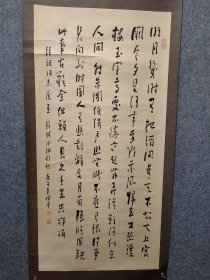 明月幾時有把酒問青天不知天上宮
闕今夕是何年我欲乘風歸去又恐瓊
樓玉宇高處不勝寒起舞弄清影何似在
人間轉朱閣低綺戶照無眠不應有恨何事
長向別時圓人有悲歡離合月有陰晴圓缺
此事古難全但願人長久千里共嬋娟